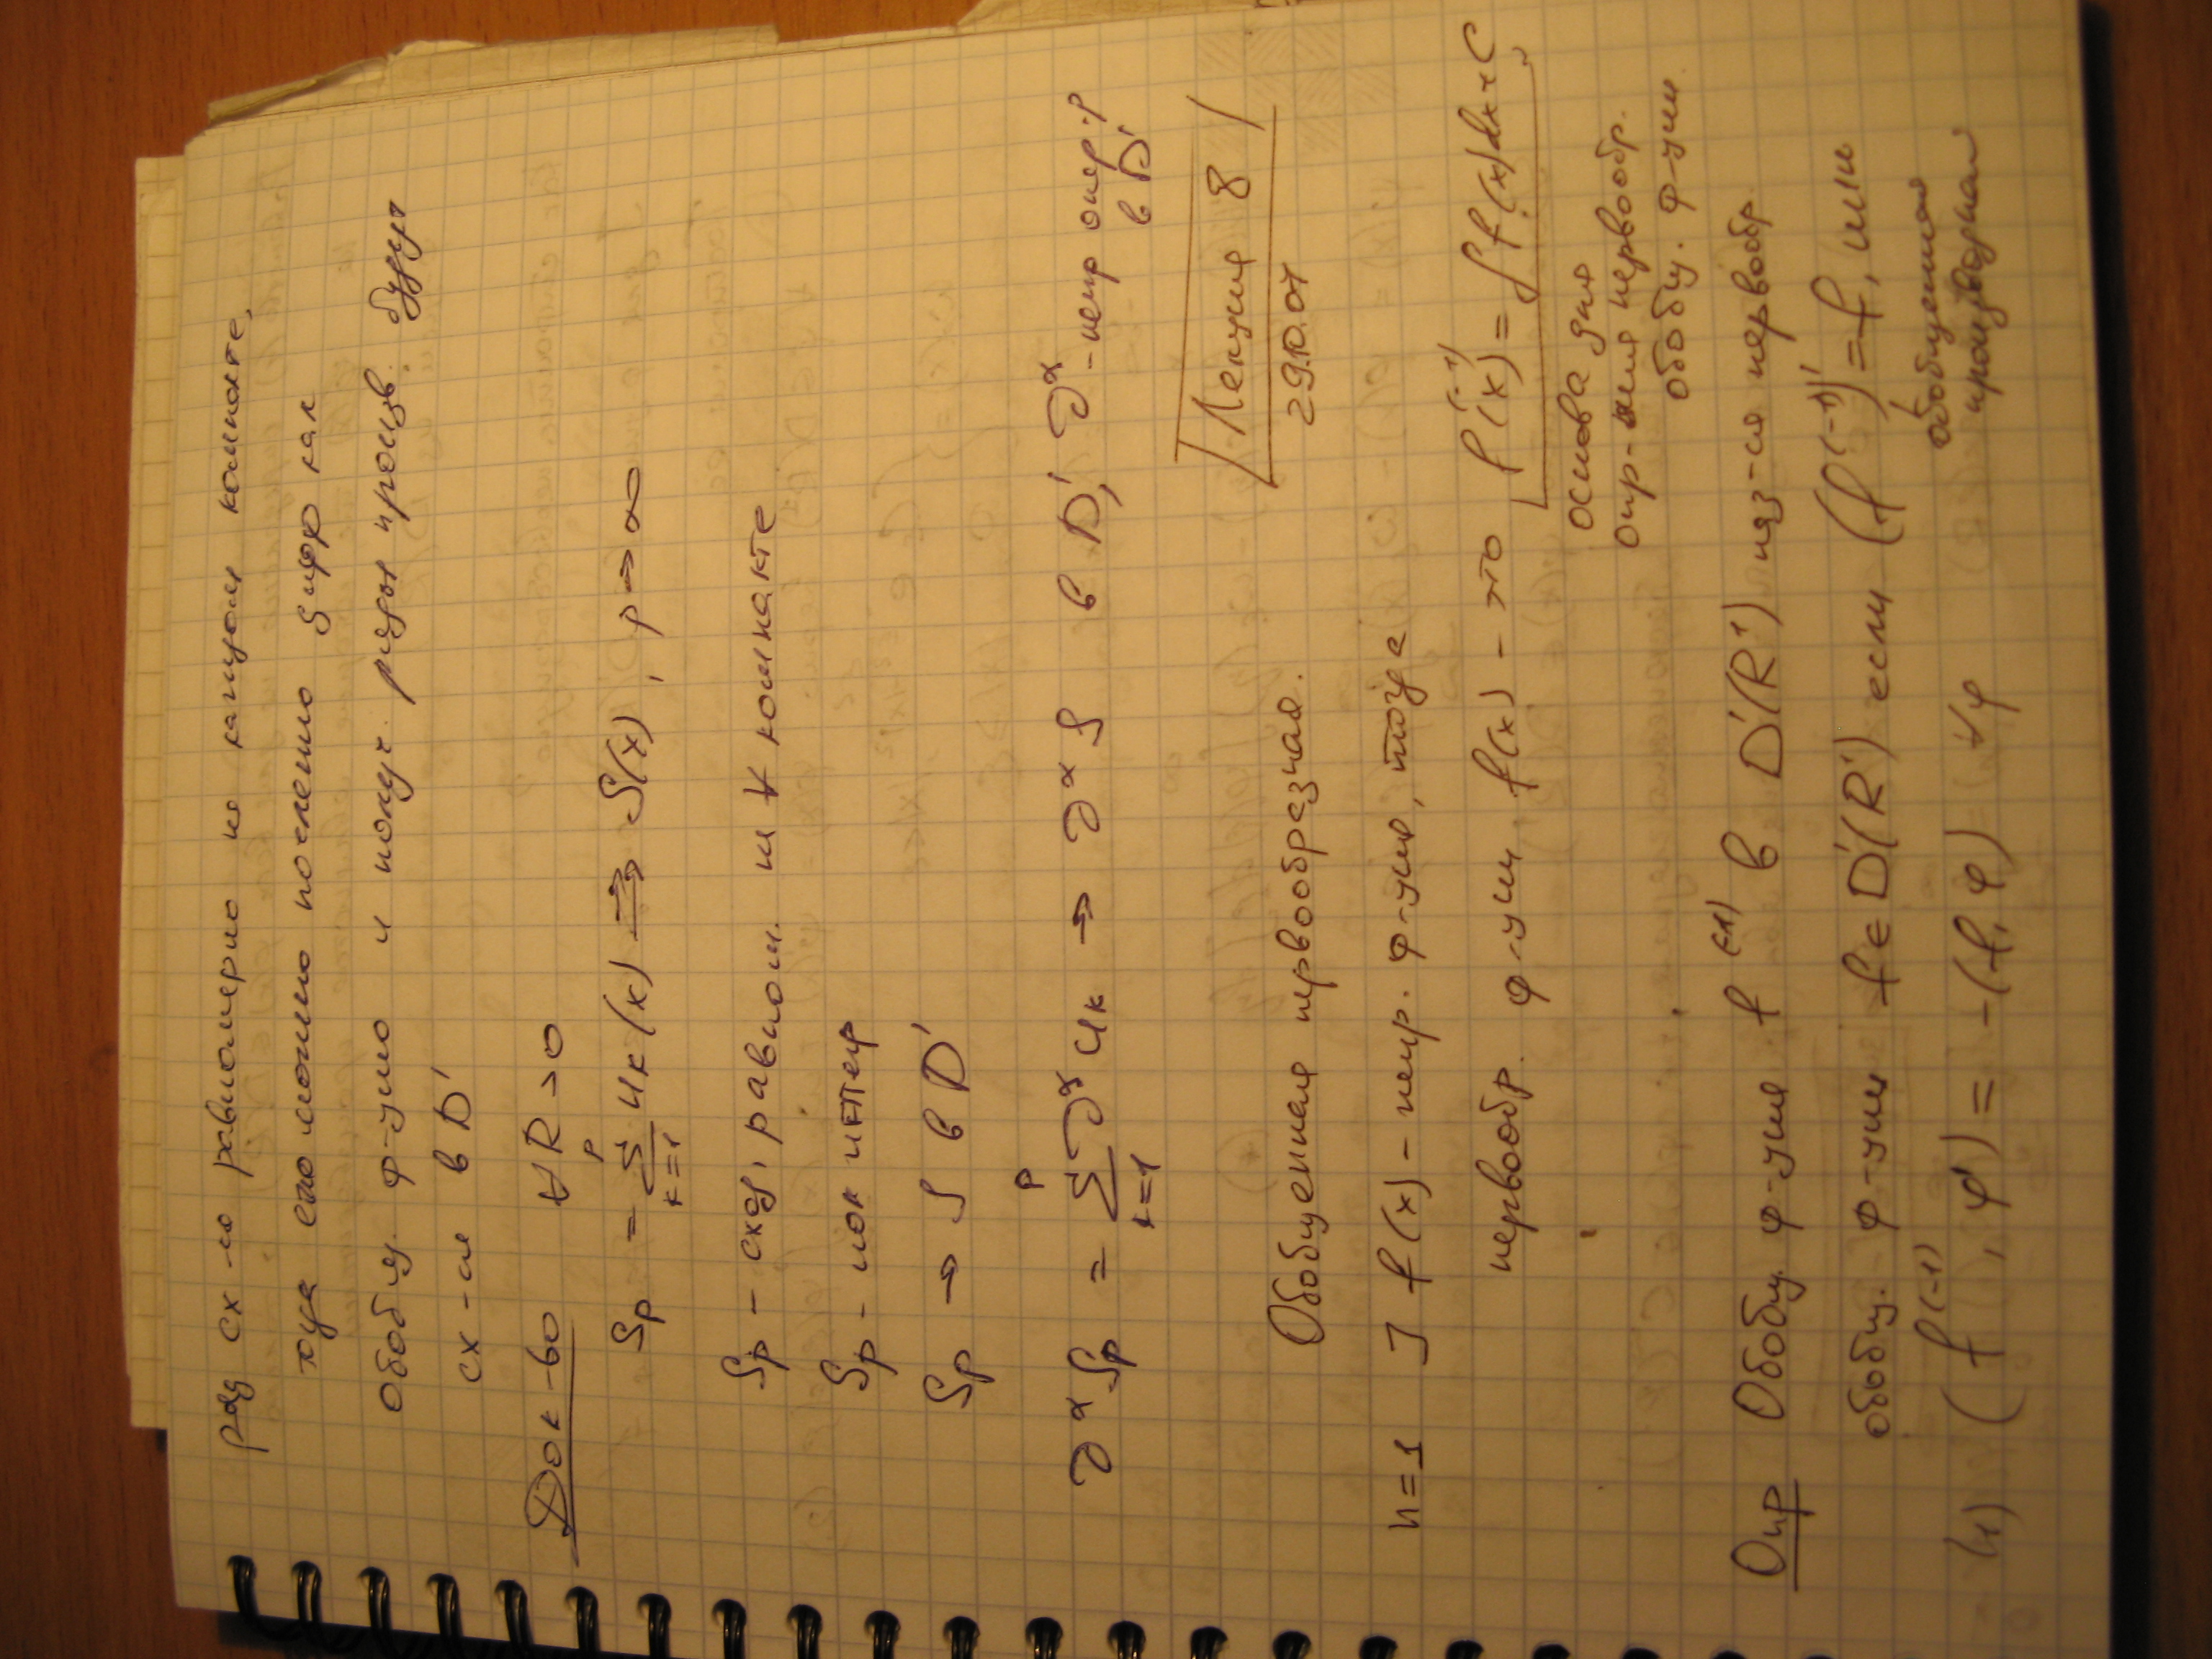 ряд сх-ся равномерно на каждом компакте,
тогда его можно почленно диффр как
обобщ. ф-цию и получ. ряды произв. будут
сх-ся в D'
Док-во ∀R>0
Sp = ∑_{k=1}^{p} u_k(x) ⇉ S(x), p→∞
Sp - сход. равном. на ∀ компакте
Sp - лок интегр
Sp → S в D'
∂^α Sp = ∑_{k=1}^{p} ∂^α u_k → ∂^α S в D', ∂^α - непр опер-р
в D'
Лекция 8
29.10.07
Обобщенная первообразная.
n=1 ] f(x) - непр. ф-ция, тогда
первообр. ф-ции f(x) - это f^{(-1)}(x) = ∫f(x)dx+C
основа для
опр-ния первообр.
обобщ. ф-ции
Опр Обобщ. ф-ция f^{(-1)} в D'(R^1) наз-ся первообр.
обобщ. ф-ции f∈D'(R^1) если (f^{(-1)})' = f, или
обобщенная
производная
(1) (f^{(-1)}, φ') = -(f, φ) ∀φ